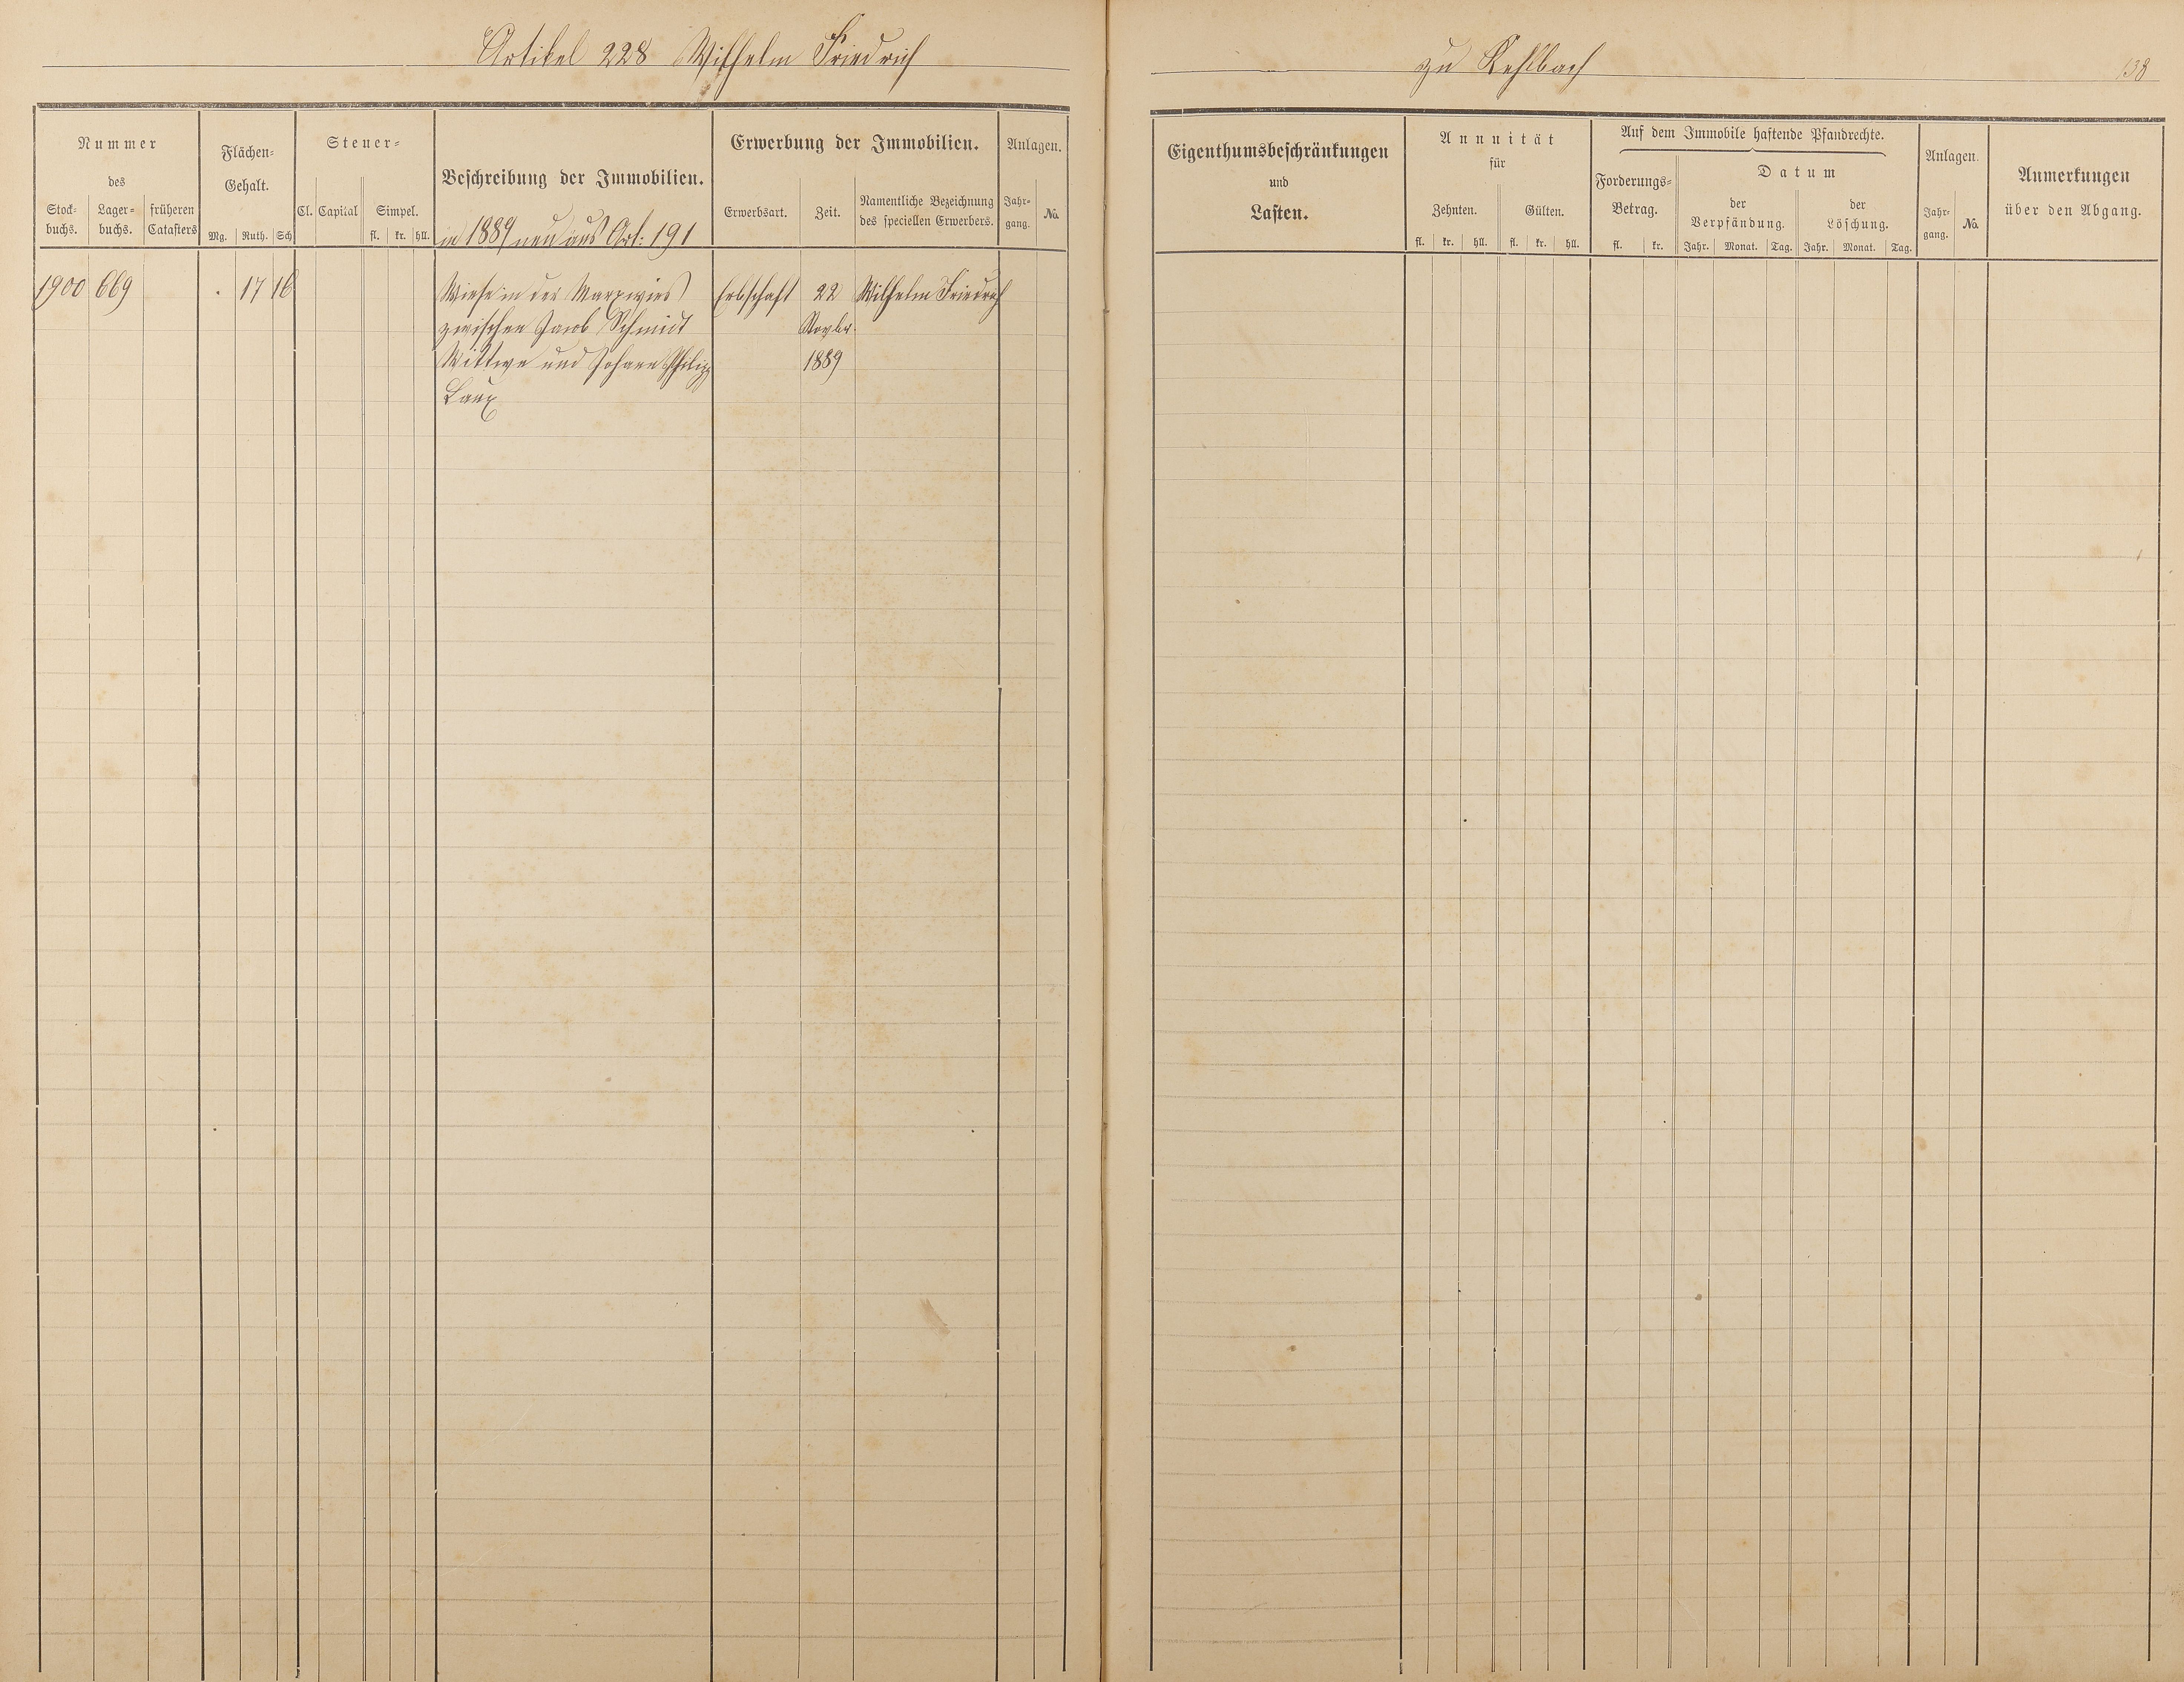 Artikel 228 Wilhelm Friedrich
zu Kehlbach
138
Nummer
des
Stock-
buchs.
Lager-
buchs.
früheren
Catasters
Flächen-
Gehalt.
Mg. Ruth. Sch
Steuer-
Cl. Capital Simpel.
fl. kr. hll.
Beschreibung der Immobilien.
in 1889 neu aus Art: 191
Erwerbung der Immobilien.
Erwerbsart. Zeit.
Namentliche Bezeichnung
des speciellen Erwerbers.
Anlagen.
Jahr-
gang.
No.
Eigenthumsbeschränkungen
und
Lasten.
Annuität
für
Zehnten. Gülten.
fl. kr. hll. fl. kr. hll.
Auf dem Immobile haftende Pfandrechte.
Forderungs-
Betrag.
fl. kr.
Datum
der
Verpfändung.
Jahr. Monat. Tag.
der
Löschung.
Jahr. Monat. Tag.
Anlagen.
Jahr-
gang.
No.
Anmerkungen
über den Abgang.
1900 669 . 17 16 Wiese in der Marxwies Erbschaft 22 Wilhelm Friedrich
zwischen Jacob Schmidt Novbr.
Wittwe und Johann Philipp 1889
Laux